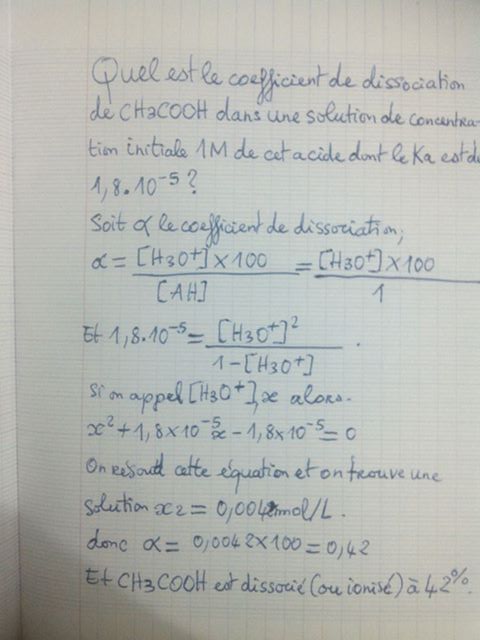 Quel est le coefficient de dissociation
de CH3COOH dans une solution de concentra-
tion initiale 1M de cet acide dont le Ka est de
1,8.10⁻⁵ ?
Soit α le coefficient de dissociation;
α = [H3O+] × 100 / [AH] = [H3O+] × 100 / 1
Et 1,8.10⁻⁵ = [H3O+]² / 1-[H3O+] .
Si on appel [H3O+], x alors.
x² + 1,8×10⁻⁵x - 1,8×10⁻⁵ = 0
On résoud cette équation et on trouve une
solution x2 = 0,0042mol/L.
donc α = 0,0042×100 = 0,42
Et CH3COOH est dissocié (ou ionisé) à 42%.